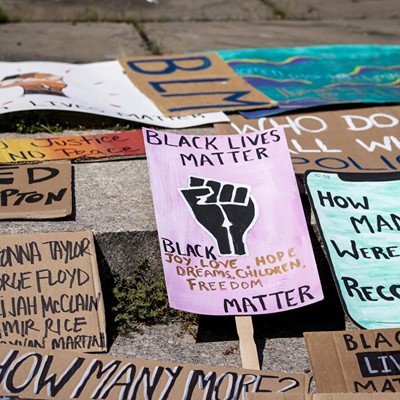 LIVES MATTER
BLM
JUSTICE
Peace
WHO DO
ALL WI
POLIC
ED
PTON
BLACK LIVES
MATTER
BLACK
JOY, LOVE, HOPE
DREAMS, CHILDREN,
FREEDOM
MATTER
HOW
MAN
WERE
RECO
ONNA TAYLOR
RGE FLOYD
IJAH McCLAIN
MIR RICE
MARTIN
HOW MANY MORE?
BLACK
LIV
MATTE